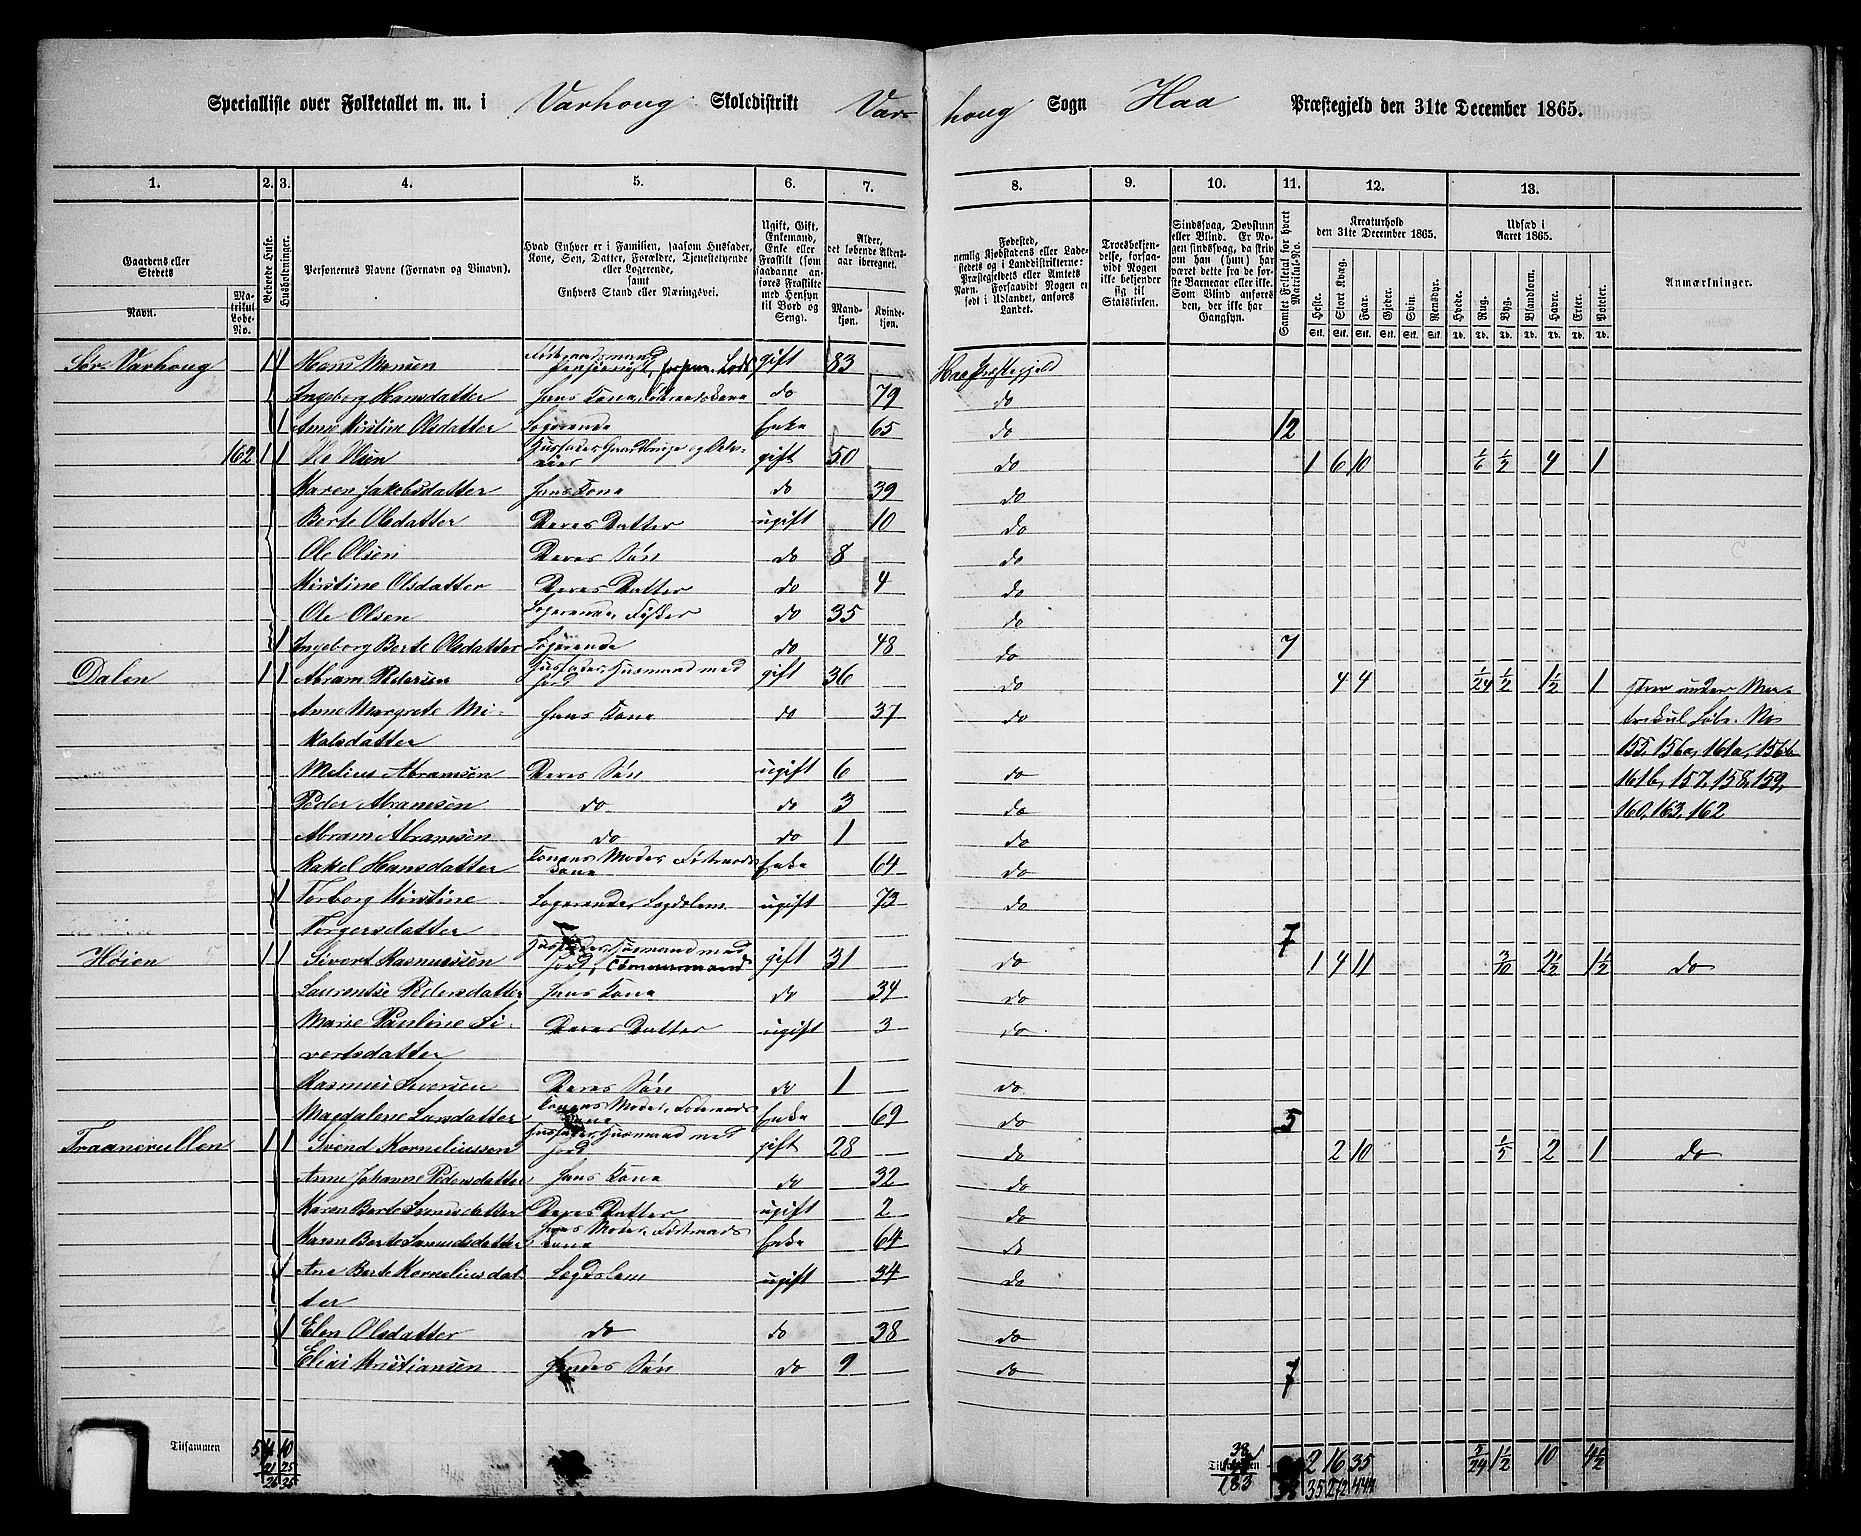 Specialliste over Folketallet m. m. i Varhoug Skoledistrikt Var-houg Sogn Haa Præstegjeld den 31te December 1865.
1. 2. 3. 4. 5. 6. 7. 8. 9. 10. 11. 12. 13.
Gaardens eller Stedets
Navn.
Matrikul Løbe-No.
Beboede Huse.
Husholdninger.
Personernes Navne (Fornavn og Vinavn).
Hvad Enhver er i Familien, saasom Husfader, Kone, Søn, Datter, Forældre, Tjenestetyende eller Logerende, samt Enhvers Stand eller Næringsvei.
Ugift, Gift, Enkemand, Enke eller Fraskilt (som saadanne anføres Fraskilte med Hensyn til Bord og Seng).
Alder, det løbende Aldersaar iberegnet.
Mandkjøn. Kvindekjøn.
Fødested, nemlig Kjøbstadens eller Ladestedets og i Landdistrikterne: Præstegjeldets eller Amtets Navn. Forsaavidt Nogen er født i Udlandet, anføres Landet.
Troesbekjendelse, forsaavidt Nogen ikke bekjender sig til Statskirken.
Sindssvag, Døvstum eller Blind. Er Nogen sindssvag, da skrives om han (hun) har været dette fra de første Barneaar eller ikke. Som Blind anføres den, der ikke har Gangsyn.
Samlet Folketal for hvert Matrikul-No.
Kreaturhold den 31te December 1865.
Heste. Stort Kvæg. Faar. Gjeder. Svin. Rensdyr.
Stk. Stk. Stk. Stk. Stk. Stk.
Udsæd i Aaret 1865.
Hvede. Rug. Byg. Blandkorn. Havre. Erter. Poteter.
Td. Td. Td. Td. Td. Td. Td.
Anmærkninger.
Sør Varhoug 1 1 Hans Monsen gift 83 Haa Præstegjeld
Ingeborg Hansdatter hans Kone, do 79 do
1 Ane Kirstine Olsdatter Logerende Enke 65 do 12
162 1 1 Ole Olsen Husfader, Gaardbruger og gift 50 do 1 6 10 1/6 1/2 4 1
Karen Jakobsdatter hans Kone do 39 do
Berte Olsdatter Deres Datter ugift 10 do
Ole Olsen Deres Søn do 8 do
Kirstine Olsdatter Deres Datter do 4 do
Ole Olsen Logerende, Fisker do 35 do
1 Ingeborg Berte Olsdatter Logerende do 48 do 7
Dalen 1 1 Abram Pedersen Husfader, Husmand med Jord gift 36 do 4 4 1/24 1/2 1 1/2 1 under Ma-
Anne Margrete Mi- hans Kone do 37 do trikul Løbe No
kalsdatter 155, 156a, 161a, 156b
Melius Abramsen Deres Søn ugift 6 do 161b, 157, 158, 159,
Peder Abramsen do do 3 do 160, 163, 162
Abram Abramsen do do 1 do
Rakel Hansdatter Konens Moder, Enke 64 do
1 Torborg Kirstine Logerende, Lægdslem ugift 73 do
Torgersdatter 7
Høien 1 1 Sivert Rasmussen Husfader, Husmand med Jord, Tømmermand gift 31 do 1 4 11 3/10 2 1/2 1 1/2 do
Laurentse Pedersdatter hans Kone do 34 do
Marie Pauline Si- Deres Datter ugift 3 do
vertsdatter
Rasmus Siversen Deres Søn do 1 do
Magdalene Larsdatter Konens Moder, Enke 69 do 5
Traanevullen 1 1 Svend Korneliussen Husfader, Husmand med Jord gift 28 do 2 10 1/5 2 1 do
Anne Johanne Pedersdatter hans Kone do 32 do
Karen Berte Svendsdatter Deres Datter ugift 2 do
Karen Berte hans Moder, Enke 64 do
1 Ane Berte Korneliusdat- Lægdslem ugift 34 do
ter
1 Elen Olsdatter do do 38 do
Elias Kristiansen hendes Søn do 9 do 7
Tilsammen 5 10 Tilsammen 38 2 16 35 5/24 1 1/2 10 4 1/2
21 25
26 35 183 35 272 444